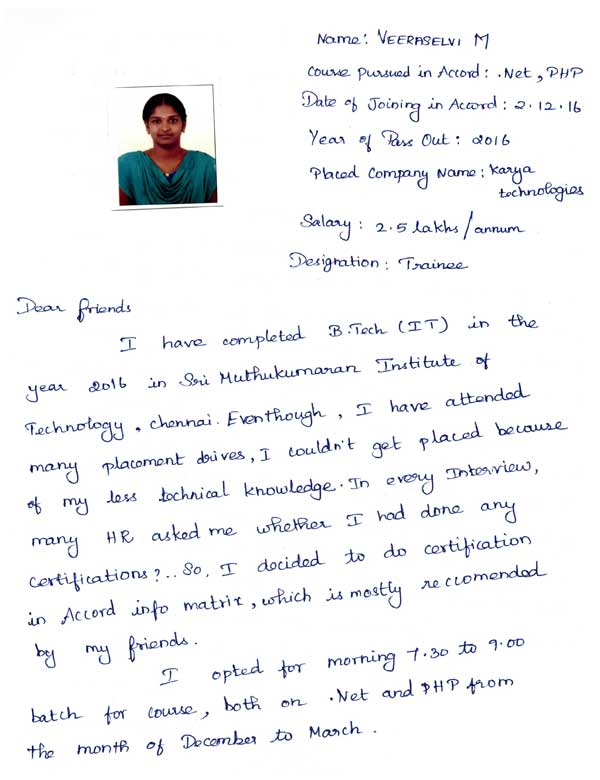 Name: VEERASELVI M
Course pursued in Accord: .Net, PHP
Date of Joining in Accord: 2.12.16
Year of Pass Out: 2016
Placed Company Name: Karya
technologies
Salary: 2.5 lakhs/annum
Designation: Trainee
Dear friends
I have completed B.Tech (IT) in the
year 2016 in Sri Muthukumaran Institute of
Technology, chennai. Eventhough, I have attended
many placement drives, I couldn't get placed because
of my less technical knowledge. In every Interview,
many HR asked me whether I had done any
certifications?.. So, I decided to do certification
in Accord info matrix, which is mostly reccomended
by my friends.
I opted for morning 7.30 to 9.00
batch for course, both on .Net and PHP from
the month of December to March.